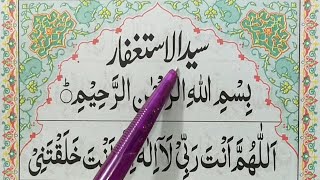 سید الاستغفار
بِسْمِ اللهِ الرَّحْمٰنِ الرَّحِيْمِ
اَللّٰهُمَّ اَنْتَ رَبِّيْ لَا اِلٰهَ اَنْتَ خَلَقْتَنِيْ